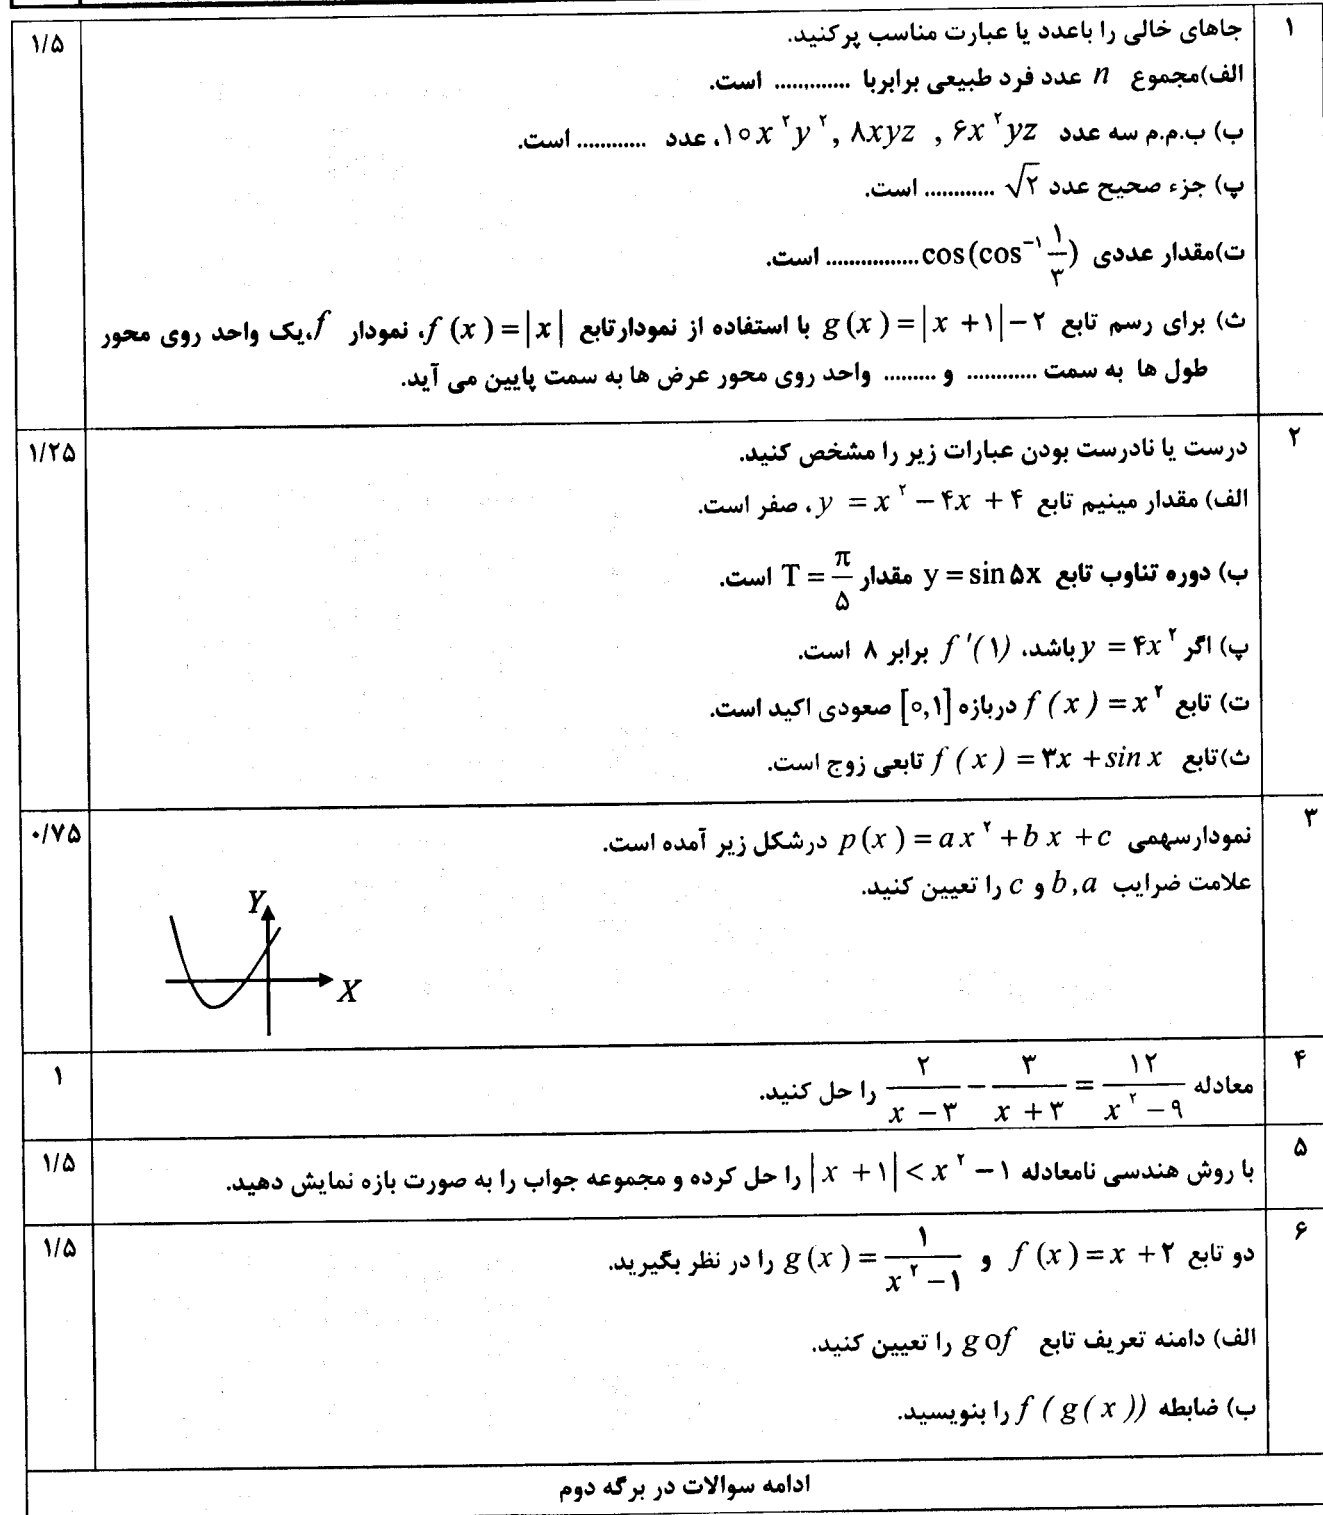 ۱
جاهای خالی را باعدد یا عبارت مناسب پرکنید.
۱/۵
الف)مجموع n عدد فرد طبیعی برابربا ............. است.
ب) ب.م.م سه عدد ۶x^۲yz , ۸xyz , ۱۰x^۲y^۲، عدد ............ است.
پ) جزء صحیح عدد √۲ ............ است.
ت)مقدار عددی cos(cos^{-۱} ۱/۳)................ است.
ث) برای رسم تابع g(x)=|x+۱|−۲ با استفاده از نمودارتابع f(x)=|x|، نمودار f،یک واحد روی محور
طول ها به سمت ............ و ......... واحد روی محور عرض ها به سمت پایین می آید.
۲
درست یا نادرست بودن عبارات زیر را مشخص کنید.
۱/۲۵
الف) مقدار مینیم تابع y = x^۲ − ۴x + ۴، صفر است.
ب) دوره تناوب تابع y = sin ۵x مقدار T = π/۵ است.
پ) اگر y = ۴x^۲ باشد، f'(۱) برابر ۸ است.
ت) تابع f(x) = x^۲ دربازه [۰,۱] صعودی اکید است.
ث)تابع f(x) = ۳x + sin x تابعی زوج است.
۳
نمودارسهمی p(x) = ax^۲ + bx + c درشکل زیر آمده است.
۰/۷۵
علامت ضرایب b,a و c را تعیین کنید.
Y
X
۴
معادله ۲/(x−۳) − ۳/(x+۳) = ۱۲/(x^۲−۹) را حل کنید.
۱
۵
با روش هندسی نامعادله |x+۱| < x^۲ − ۱ را حل کرده و مجموعه جواب را به صورت بازه نمایش دهید.
۱/۵
۶
دو تابع f(x) = x + ۲ و g(x) = ۱/(x^۲−۱) را در نظر بگیرید.
۱/۵
الف) دامنه تعریف تابع gof را تعیین کنید.
ب) ضابطه f(g(x)) را بنویسید.
ادامه سوالات در برگه دوم